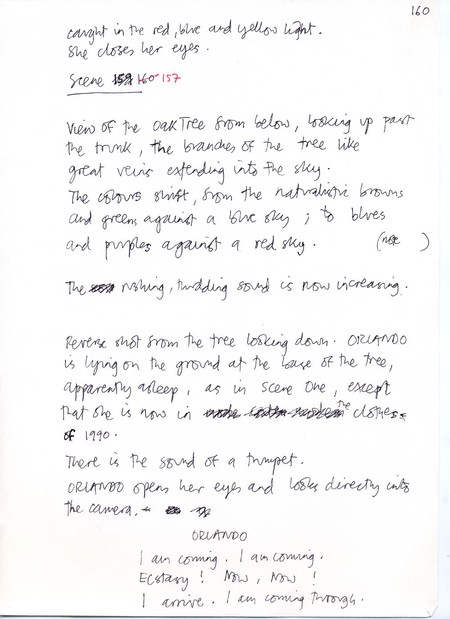 160
caught in the red, blue and yellow light.
She closes her eyes.
Scene 159 160 157
View of the Oak Tree from below, looking up past
the trunk, the branches of the tree like
great veins extending into the sky.
The colours shift, from the naturalistic browns
and greens against a blue sky ; to blues
and purples against a red sky. (note )
The rushing, thudding sound is now increasing.
Reverse shot from the tree looking down. ORLANDO
is lying on the ground at the base of the tree,
apparently asleep, as in Scene One, except
that she is now in the clothes
of 1990.
There is the sound of a trumpet.
ORLANDO opens her eyes and looks directly into
the camera.
ORLANDO
I am coming. I am coming.
Ecstasy! Now, Now!
I arrive. I am coming through.